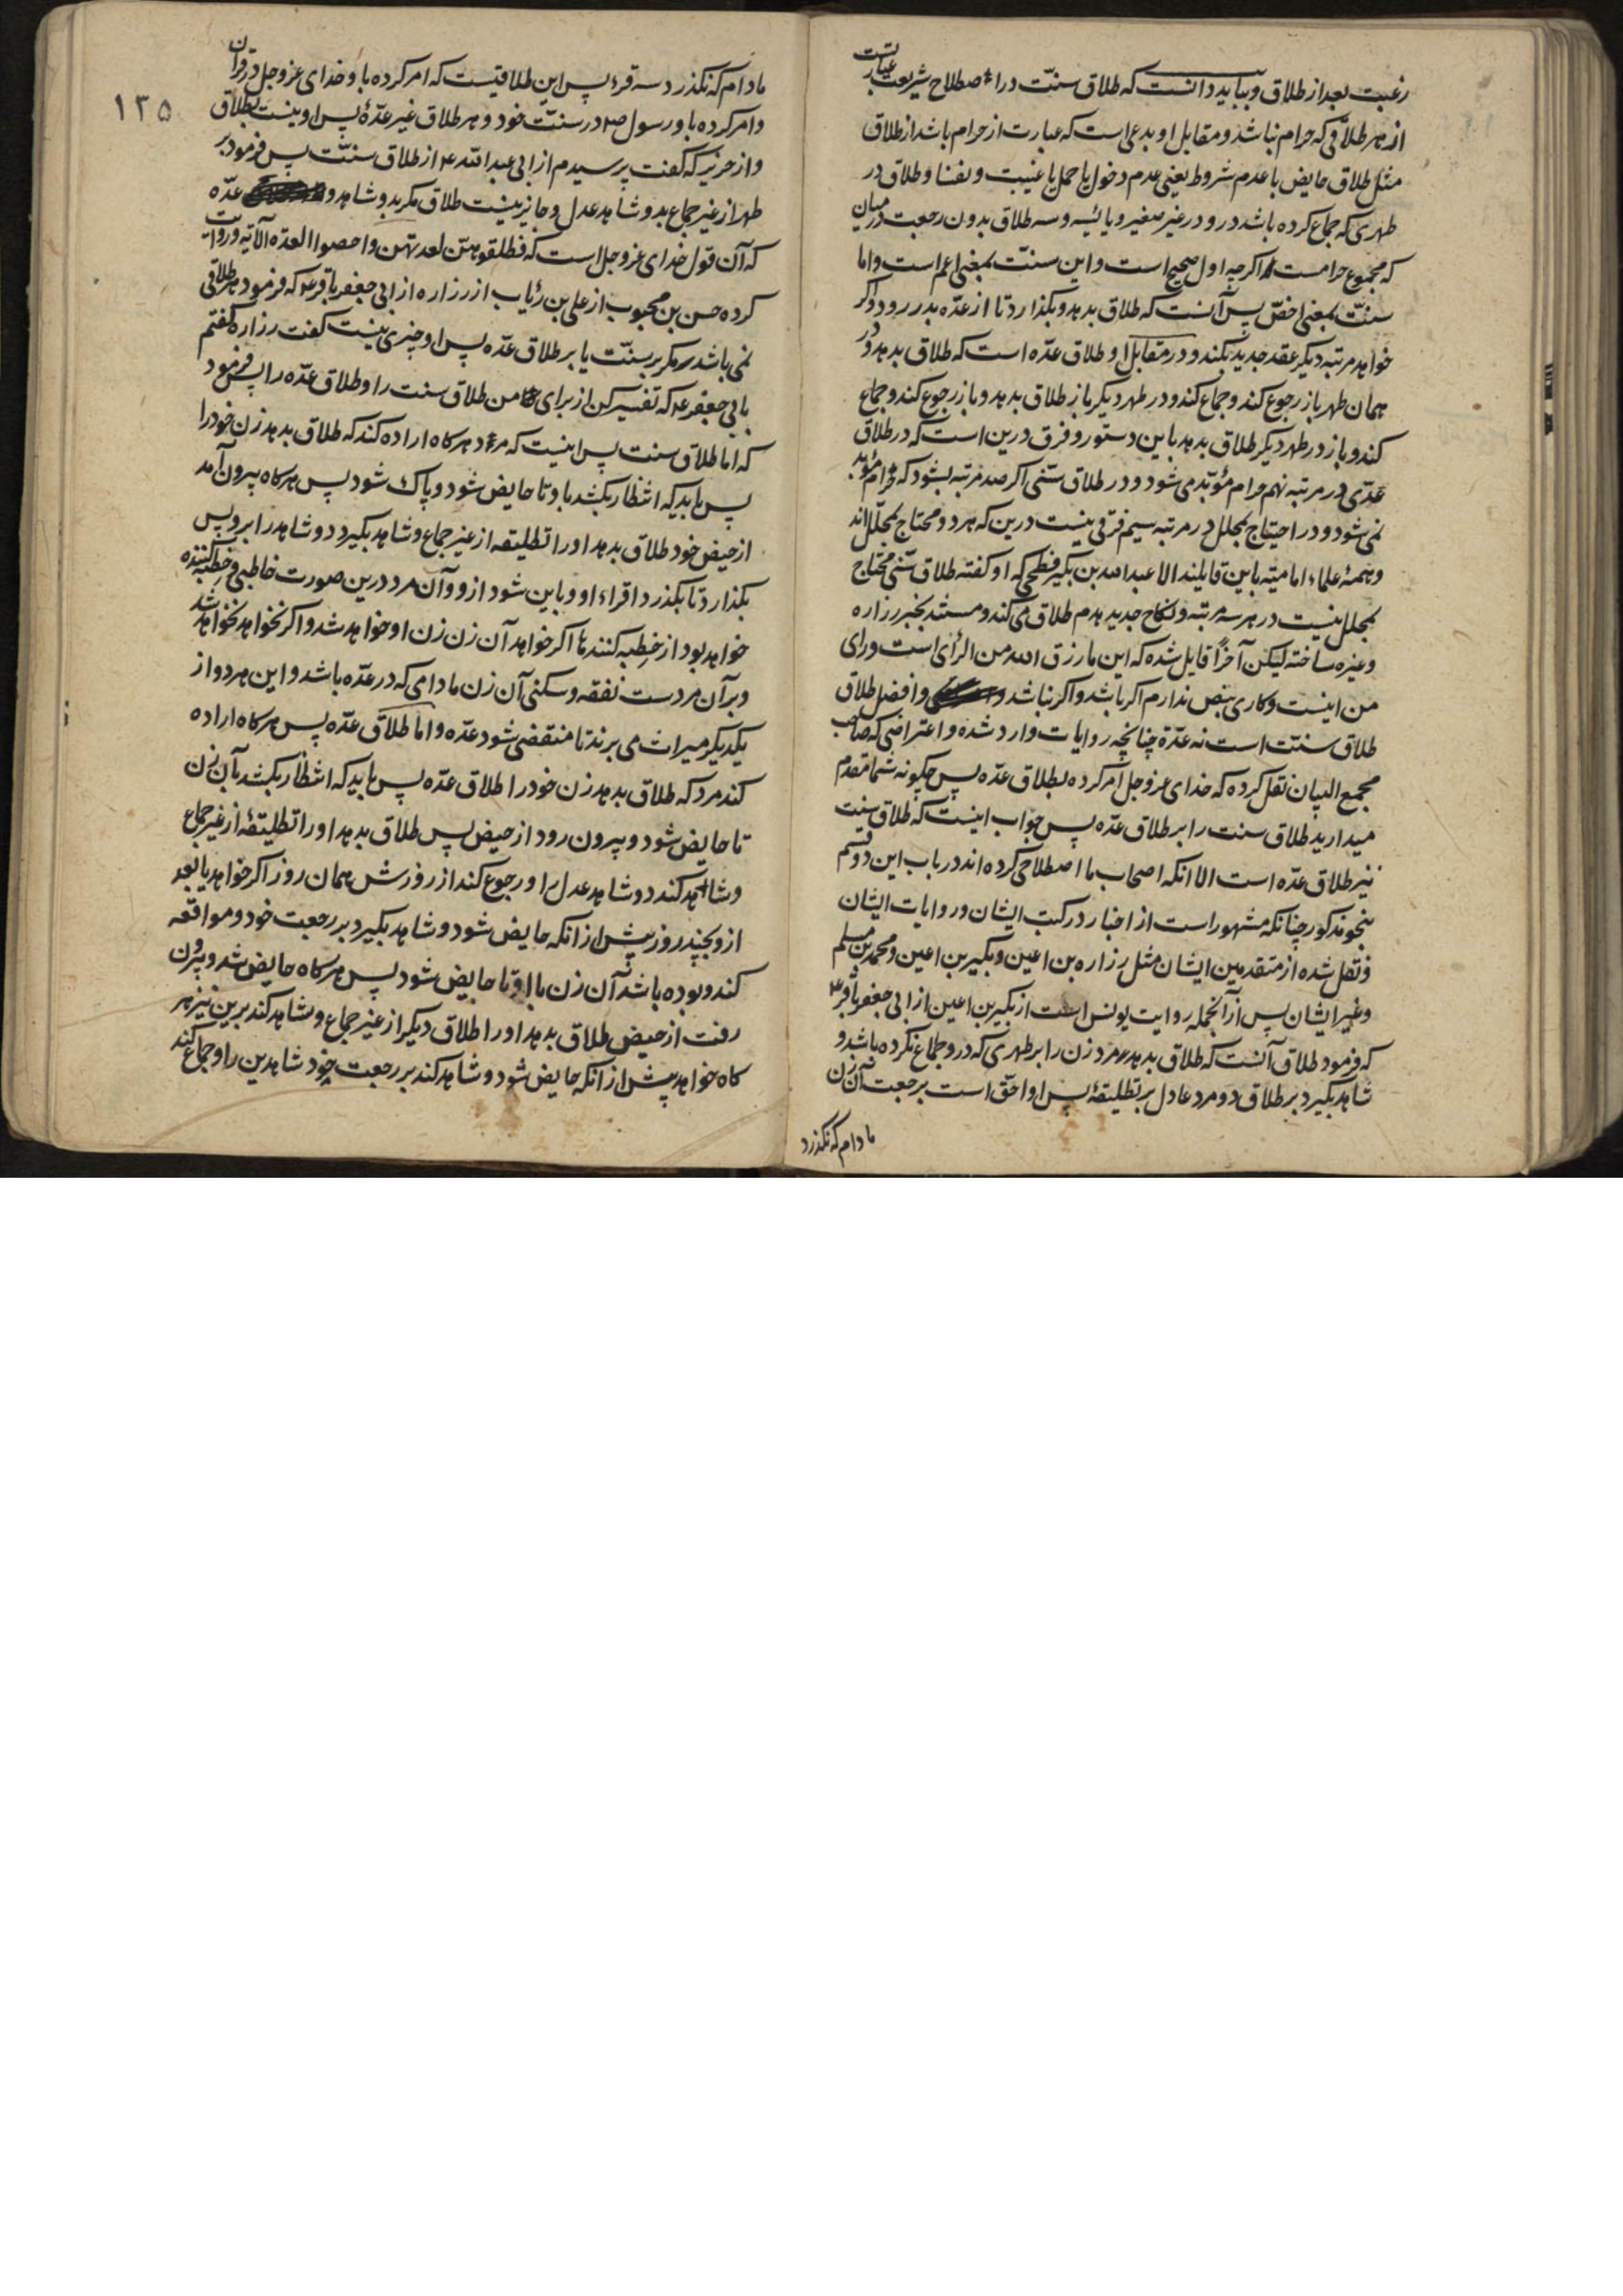 رغبت بعد از طلاق و بباید دانست که طلاق سنّت در اصطلاح شریعت عبارتست
از هر طلاقی که حرام نباشد و مقابل او بدعی است که عبارت از حرام باشد از طلاق
مثل طلاق حایض با عدم شروط یعنی عدم دخول یا حمل یا غیبت و نفسا و طلاق در
طهری که جماع کرده باشد درو در غیر صغیر و یائسه و سه طلاق بدون رجعت در میان
که مجموع حرامست اکرچه اول صحیح است و این سنّت بمعنی اعم است و اما
سنّت بمعنی اخصّ پس آنست که طلاق بدهد و بکذارد تا از عدّه بدر رود و اکر
خواهد مرتبه دیکر عقد جدید بکند و در مقابل او طلاق عدّه است که طلاق بدهد و در
همان طهر باز رجوع کند و جماع کند و در طهر دیکر باز طلاق بدهد و باز رجوع کند و جماع
کند و باز در طهر دیکر طلاق بدهد باین دستور و فرق درین است که در طلاق
عدّی در مرتبه نهم حرام مؤبّد می شود و در طلاق سنّی اکر صد مرتبه بشود که حرام مؤبد
نمی شود و در احتیاج بمحلل در مرتبه سیم فرقی نیست درین که هر دو محتاج بمحلّل اند
و همهٔ علماء امامیّه باین قایلند الا عبدالله بن بکیر فطحی که او کفته طلاق سنّی محتاج
بمحلل نیست در هر سه مرتبه و نکاح جدید هدم طلاق می کند و مستند بخبر زراره
و غیره ساخته لیکن آخراً قایل شده که این ما رزق الله من الرّأی است و رای
من اینست و کاری بنص ندارم اکر باشد و اکر نباشد و افضل طلاق
طلاق سنّت است نه عدّة چنانچه روایات وارد شده و اعتراضی که صاحب
مجمع البیان نقل کرده که خدای عز و جل امر کرده بطلاق عدّه پس چکونه شما مقدم
میدارید طلاق سنت را بر طلاق عدّه پس جواب اینست که طلاق سنت
نیز طلاق عدّه است الا انکه اصحاب ما اصطلاحی کرده اند در باب این دو قسم
بنحو مذکور چنانکه مشهور است از اخبار در کتب ایشان و روایات ایشان
و نقل شده از متقدمین ایشان مثل زراره بن اعین و بکیر بن اعین و محمد بن مسلم
و غیر ایشان پس از آنجمله روایت یونس است از بکیر بن اعین از ابی جعفر باقر ع
که فرمود طلاق آنست که طلاق بدهد مرد زن را بر طهری که درو جماع نکرده باشد و
شاهد بکیرد بر طلاق دو مرد عادل بر تطلیقهٔ پس او احقّ است برجعت آن زن
مادام که نکذرد
۱۳۵
مادام که نکذرد سه قرء پس این طلاقیست که امر کرده باو خدای عز و جل در قران
و امر کرده باو رسول ص در سنّت خود و هر طلاق غیر عدّهٔ پس او نیست بطلاق
و از حریز که کفت پرسیدم از ابی عبدالله ع از طلاق سنّت پس فرمود بر
طهر از غیر جماع بدو شاهد عدل و جایز نیست طلاق مکر بدو شاهد و عدّه
که آن قول خدای عز و جل است که فطلقوهنّ لعدتهن و احصوا العدّه الآیه و روایت
کرده حسن بن محبوب از علی بن رئاب از زراره از ابی جعفر باقر ع که فرمود هر طلاقی
نمی باشد مکر بر سنّت یا بر طلاق عدّه پس او چیزی نیست کفت زراره کفتم
بابی جعفر ع که تفسیر کن از برای من طلاق سنت را و طلاق عدّه را پس فرمود
که اما طلاق سنت پس اینست که مرد هرکاه اراده کند که طلاق بدهد زن خود را
پس باید که انتظار بکشد باو تا حایض شود و پاک شود پس هرکاه بیرون آمد
از حیض خود طلاق بدهد او را تطلیقه از غیر جماع و شاهد بکیرد دو شاهد را برو پس
بکذارد تا بکذرد اقراء او و باین شود ازو و آن مرد درین صورت خاطبی و خطبه کننده
خواهد بود از خطبه کنندها اکر خواهد آن زن زن او خواهد شد و اکر نخواهد نخواهد شد
و بر آن مردست نفقه و سکنی آن زن مادامی که در عدّه باشد و این هر دو از
یکدیکر میراث می برند تا منقضی شود عدّه و اما طلاق عدّه پس هرکاه اراده
کند مرد که طلاق بدهد زن خود را طلاق عدّه پس باید که انتظار بکشد بآن زن
تا حایض شود و بیرون رود از حیض پس طلاق بدهد او را تطلیقهٔ از غیر جماع
و شاهد کند دو شاهد عدل را و رجوع کند از روزش همان روز اکر خواهد یا بعد
ازو بچند روز پیش از انکه حایض شود و شاهد بکیرد بر رجعت خود و مواقعه
کند و بوده باشد آن زن با او تا حایض شود پس هرکاه حایض شد و بیرون
رفت از حیض طلاق بدهد او را طلاق دیکر از غیر جماع و شاهد کند برین نیز هر
کاه خواهد پیش از انکه حایض شود و شاهد کند بر رجعت خود شاهدین را و جماع کند